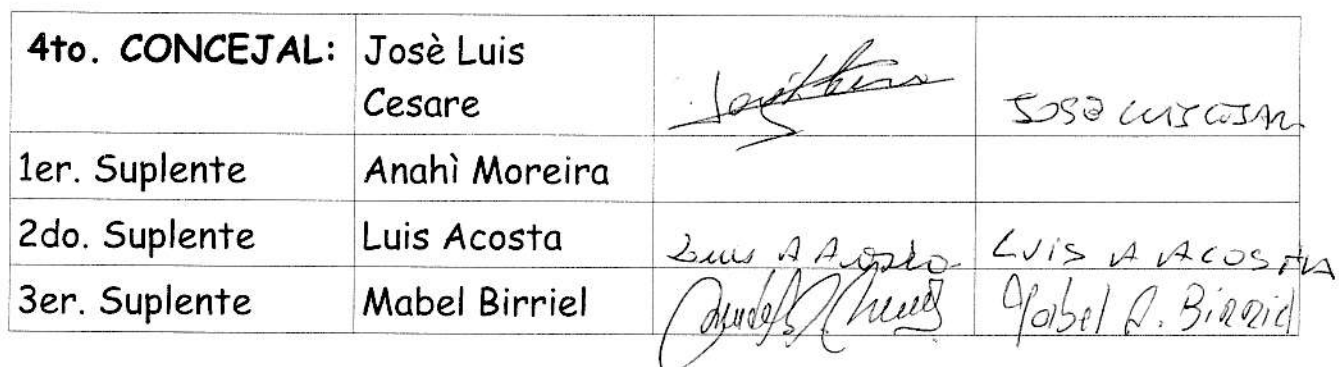 4to. CONCEJAL: Josè Luis
Cesare JOSE LUIS CESAR
1er. Suplente Anahì Moreira
2do. Suplente Luis Acosta Luis A Acosta LUIS A ACOSTA
3er. Suplente Mabel Birriel Mabel A. Birriel